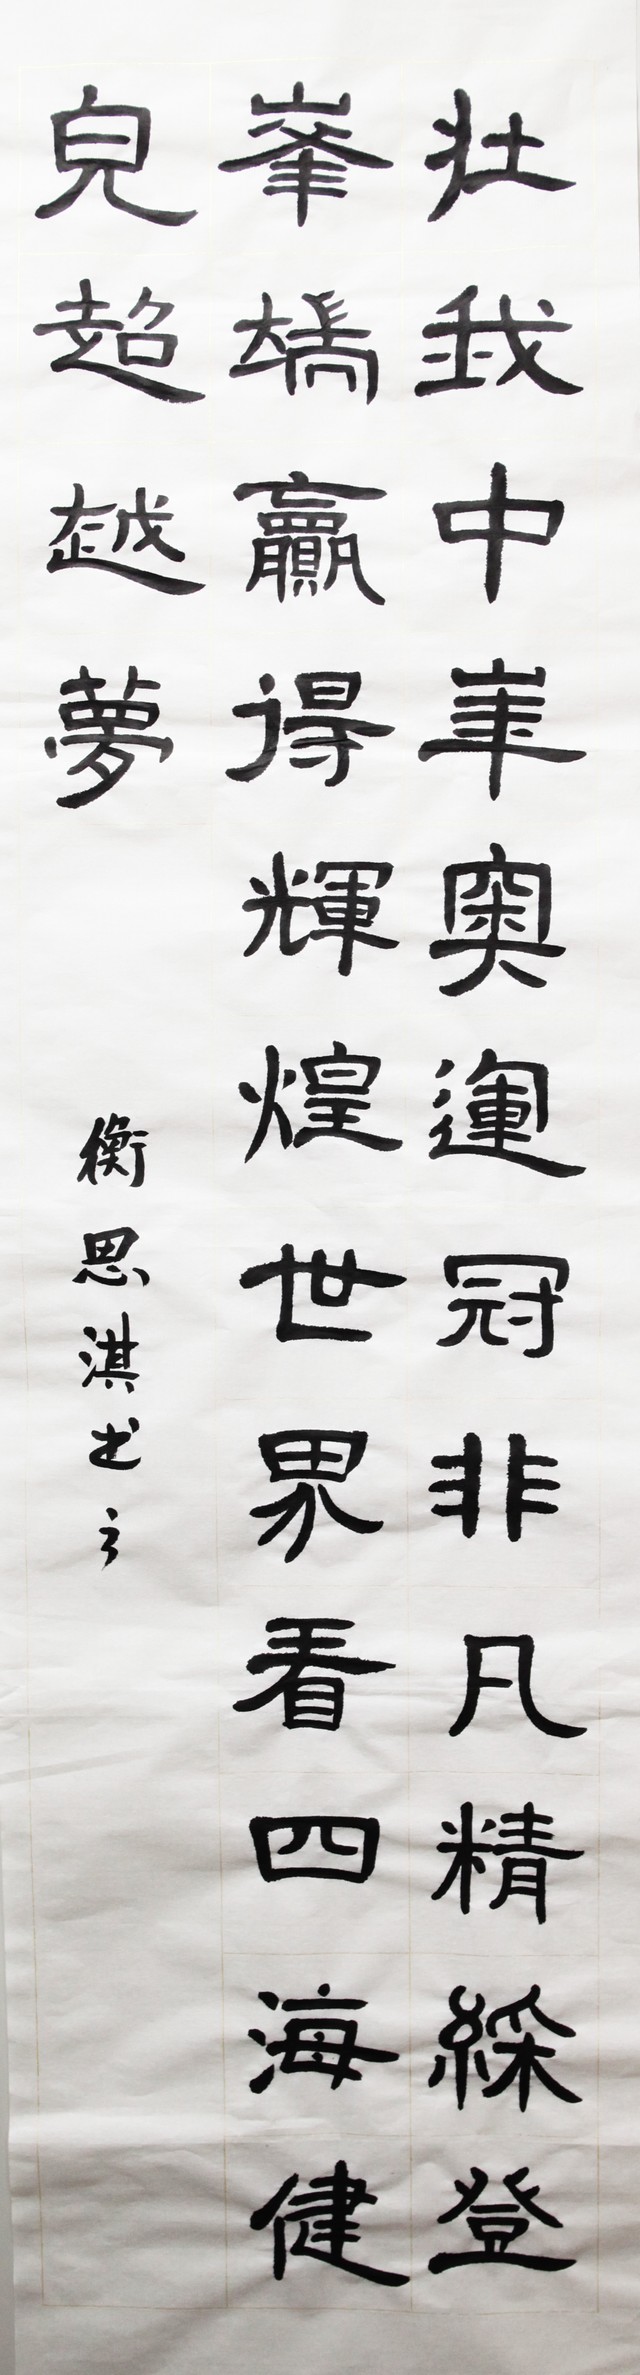 壯我中華奧運冠非凡精綵登
峯端贏得輝煌世界看四海健
兒超越夢
衡思淇书